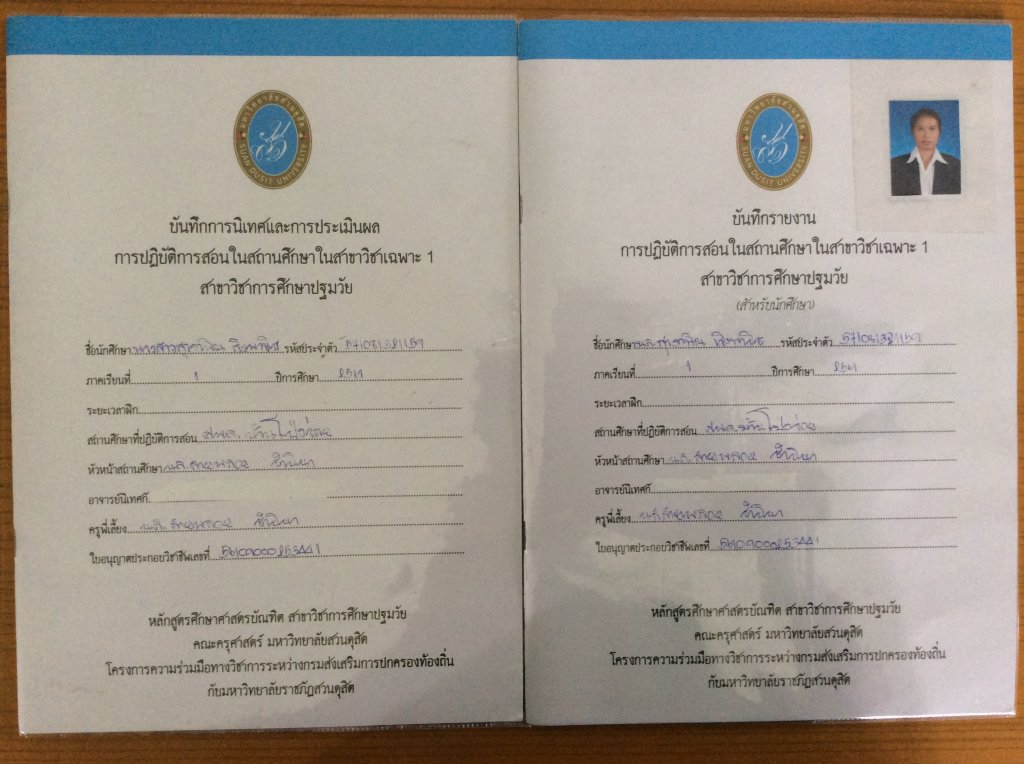 มหาวิทยาลัยสวนดุสิต
SUAN DUSIT UNIVERSITY
บันทึกการนิเทศและการประเมินผล
การปฏิบัติการสอนในสถานศึกษาในสาขาวิชาเฉพาะ 1
สาขาวิชาการศึกษาปฐมวัย
ชื่อนักศึกษา นางสาว รหัสประจำตัว 571031321159
ภาคเรียนที่ 1 ปีการศึกษา 2561
ระยะเวลาฝึก
สถานศึกษาที่ปฏิบัติการสอน ศพด.
หัวหน้าสถานศึกษา น.ส.
อาจารย์นิเทศก์
ครูพี่เลี้ยง น.ส.
ใบอนุญาตประกอบวิชาชีพเลขที่ 56109000253441
หลักสูตรศึกษาศาสตรบัณฑิต สาขาวิชาการศึกษาปฐมวัย
คณะครุศาสตร์ มหาวิทยาลัยสวนดุสิต
โครงการความร่วมมือทางวิชาการระหว่างกรมส่งเสริมการปกครองท้องถิ่น
กับมหาวิทยาลัยราชภัฏสวนดุสิต
มหาวิทยาลัยสวนดุสิต
SUAN DUSIT UNIVERSITY
บันทึกรายงาน
การปฏิบัติการสอนในสถานศึกษาในสาขาวิชาเฉพาะ 1
สาขาวิชาการศึกษาปฐมวัย
(สำหรับนักศึกษา)
ชื่อนักศึกษา น.ส. รหัสประจำตัว 571031321159
ภาคเรียนที่ 1 ปีการศึกษา 2561
ระยะเวลาฝึก
สถานศึกษาที่ปฏิบัติการสอน ศพด.
หัวหน้าสถานศึกษา น.ส.
อาจารย์นิเทศก์
ครูพี่เลี้ยง น.ส.
ใบอนุญาตประกอบวิชาชีพเลขที่ 56109000253441
หลักสูตรศึกษาศาสตรบัณฑิต สาขาวิชาการศึกษาปฐมวัย
คณะครุศาสตร์ มหาวิทยาลัยสวนดุสิต
โครงการความร่วมมือทางวิชาการระหว่างกรมส่งเสริมการปกครองท้องถิ่น
กับมหาวิทยาลัยราชภัฏสวนดุสิต